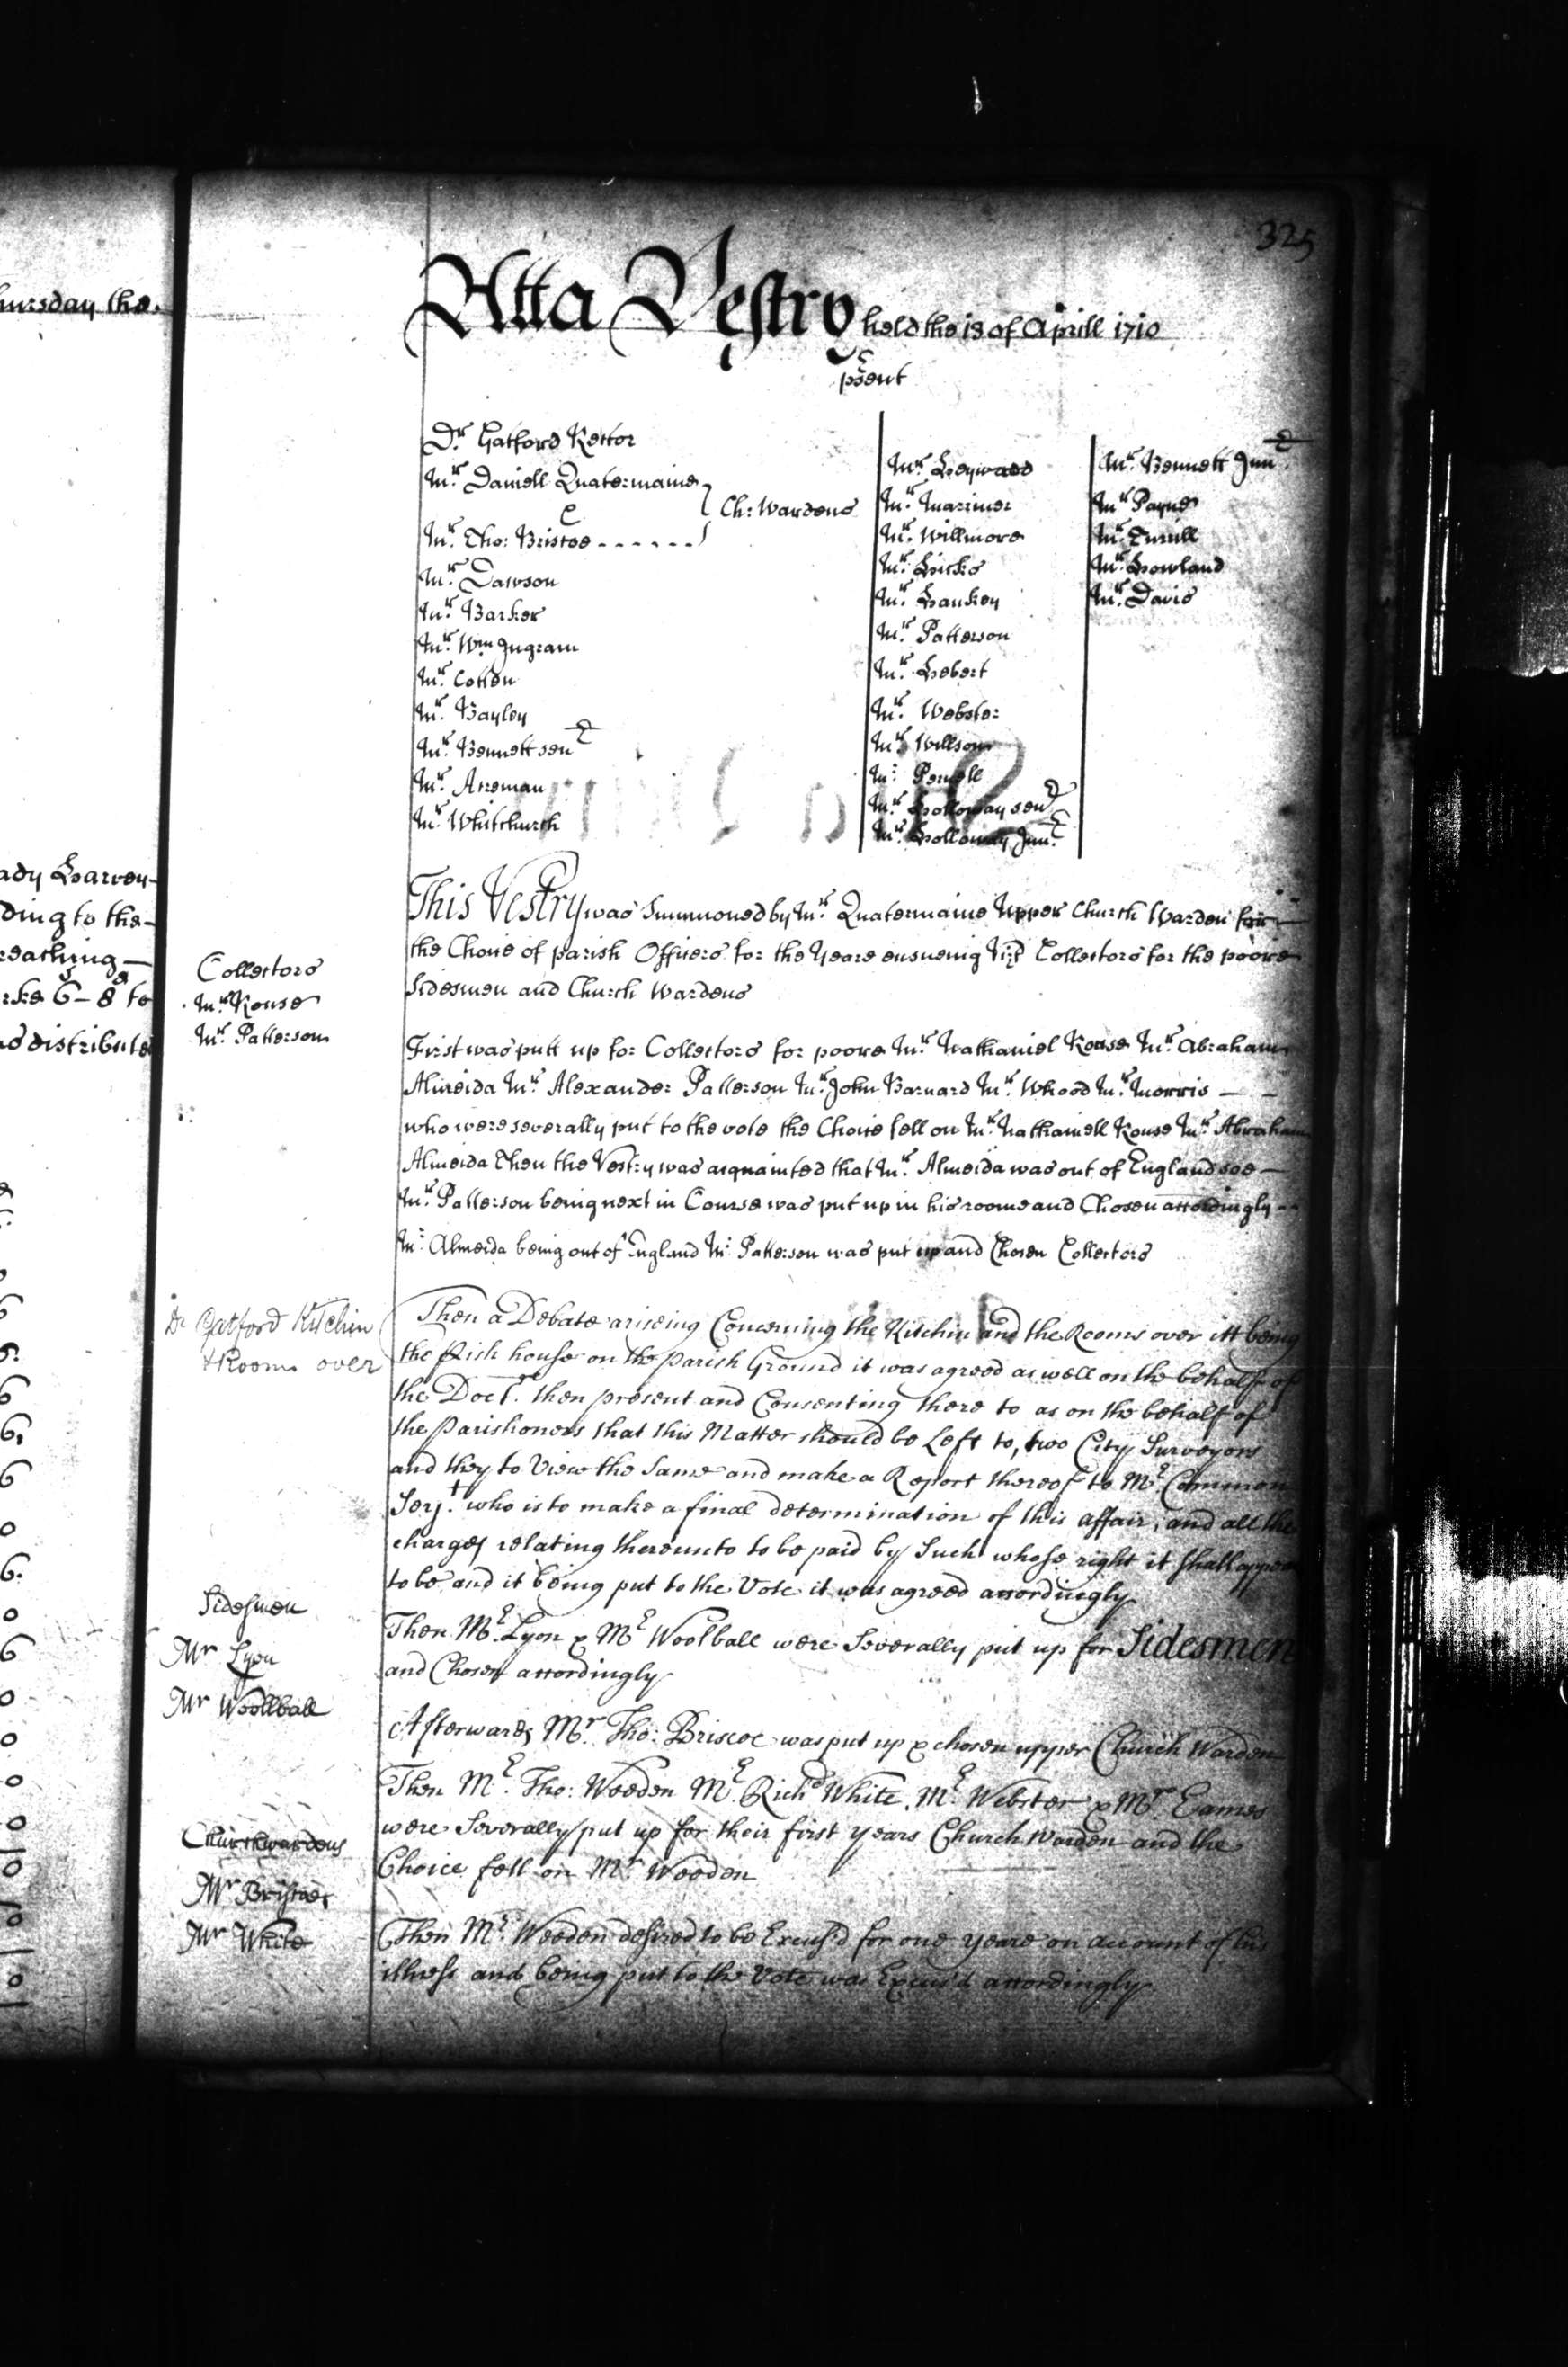 325
hursday the
Atta Vestry held the 13 of Aprill 1710
psent
Dr. Gatford Rector
Mr. Daniell Quatermaine
&
Mr. Tho: Briscoe
Ch: Wardens
Mr. Dawson
Mr. Barker
Mr. Wm Ingram
Mr. Cotten
Mr. Bayley
Mr. Bennett senr
Mr. Axeman
Mr. Whitchurch
Mr. Heywood
Mr. Marriner
Mr. Willmore
Mr. Hicks
Mr. Hankey
Mr. Patterson
Mr. Hebert
Mr. Webster
Mr. Willson
Mr. Pernell
Mr. Holloway senr
Mr. Holloway Junr.
Mr. Bennett Junr.
Mr. Payne
Mr. Turrill
Mr. Howland
Mr. Davis
This Vestry was Summoned by Mr. Quatermaine Upper Church Warden for
the Choice of parish Officers for the Yeare ensueing Vizt Collectors for the poore
Sidesmen and Church Wardens
Collectors
Mr. Rouse
Mr. Patterson
First was putt up for Collectors for poore Mr. Nathaniel Rouse Mr. Abraham
Almeida Mr. Alexander Patterson Mr. John Barnard Mr. Whood Mr. Morris
who were severally put to the vote the Choice fell on Mr. Nathaniell Rouse Mr. Abraham
Almeida Then the Vestry was acquainted that Mr. Almeida was out of England soe
Mr. Patterson being next in Course was put up in his roome and Chosen accordingly
Mr. Almeida being out of England Mr. Patterson was put up and Chosen Collectors
Dr Gatford Kitchin
& Rooms over
Then a Debate ariseing Concerning the Kitchin and the Rooms over itt being
the Pish house on the parish Ground it was agreed as well on the behalf of
the Doctr. then present and Consenting there to as on the behalf of
the Parishoners that this Matter should be Left to, two City Surveyors
and they to View the Same and make a Report thereof to Mr. Common
Serjt. who is to make a final determination of this affair, and all the
charges relating thereunto to be paid by Such whose right it shall appear
to be and it being put to the Vote it was agreed accordingly
Sidesmen
Mr Lyon
Mr Woollball
Then Mr. Lyon & Mr. Woolball were Severally put up for Sidesmen
and Chosen accordingly
Afterwards Mr. Tho: Briscoe was put up & chosen upper Church Warden
Then Mr. Tho: Weeden Mr. Richd White, Mr. Webster & Mr. Eames
were Severally put up for their first years Church Warden and the
Choice fell on Mr. Weeden
Churchwardens
Mr Briscoe
Mr White
Then Mr. Weeden desired to be Excus'd for one yeare on account of his
illness and being put to the Vote was Excus'd accordingly